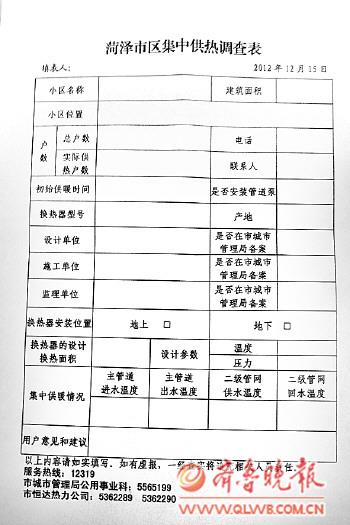 菏泽市区集中供热调查表
填表人: 2012年12月15日
小区名称 建筑面积
小区位置
户数 总户数 电话
实际供热户数 联系人
初始供暖时间 是否安装管道泵
换热器型号 产地
设计单位 是否在市城市管理局备案
施工单位 是否在市城市管理局备案
监理单位 是否在市城市管理局备案
换热器安装位置 地上 □ 地下 □
换热器的设计换热面积 设计参数 温度
压力
集中供暖情况 主管道进水温度 主管道出水温度 二级管网供水温度 二级管网回水温度
用户意见和建议
以上内容请如实填写,如有虚报,一经
服务热线: 12319
市城市管理局公用事业科: 5565199
市恒达热力公司: 5362289 5362290
齐鲁晚报
WWW.QLWB.COM.CN